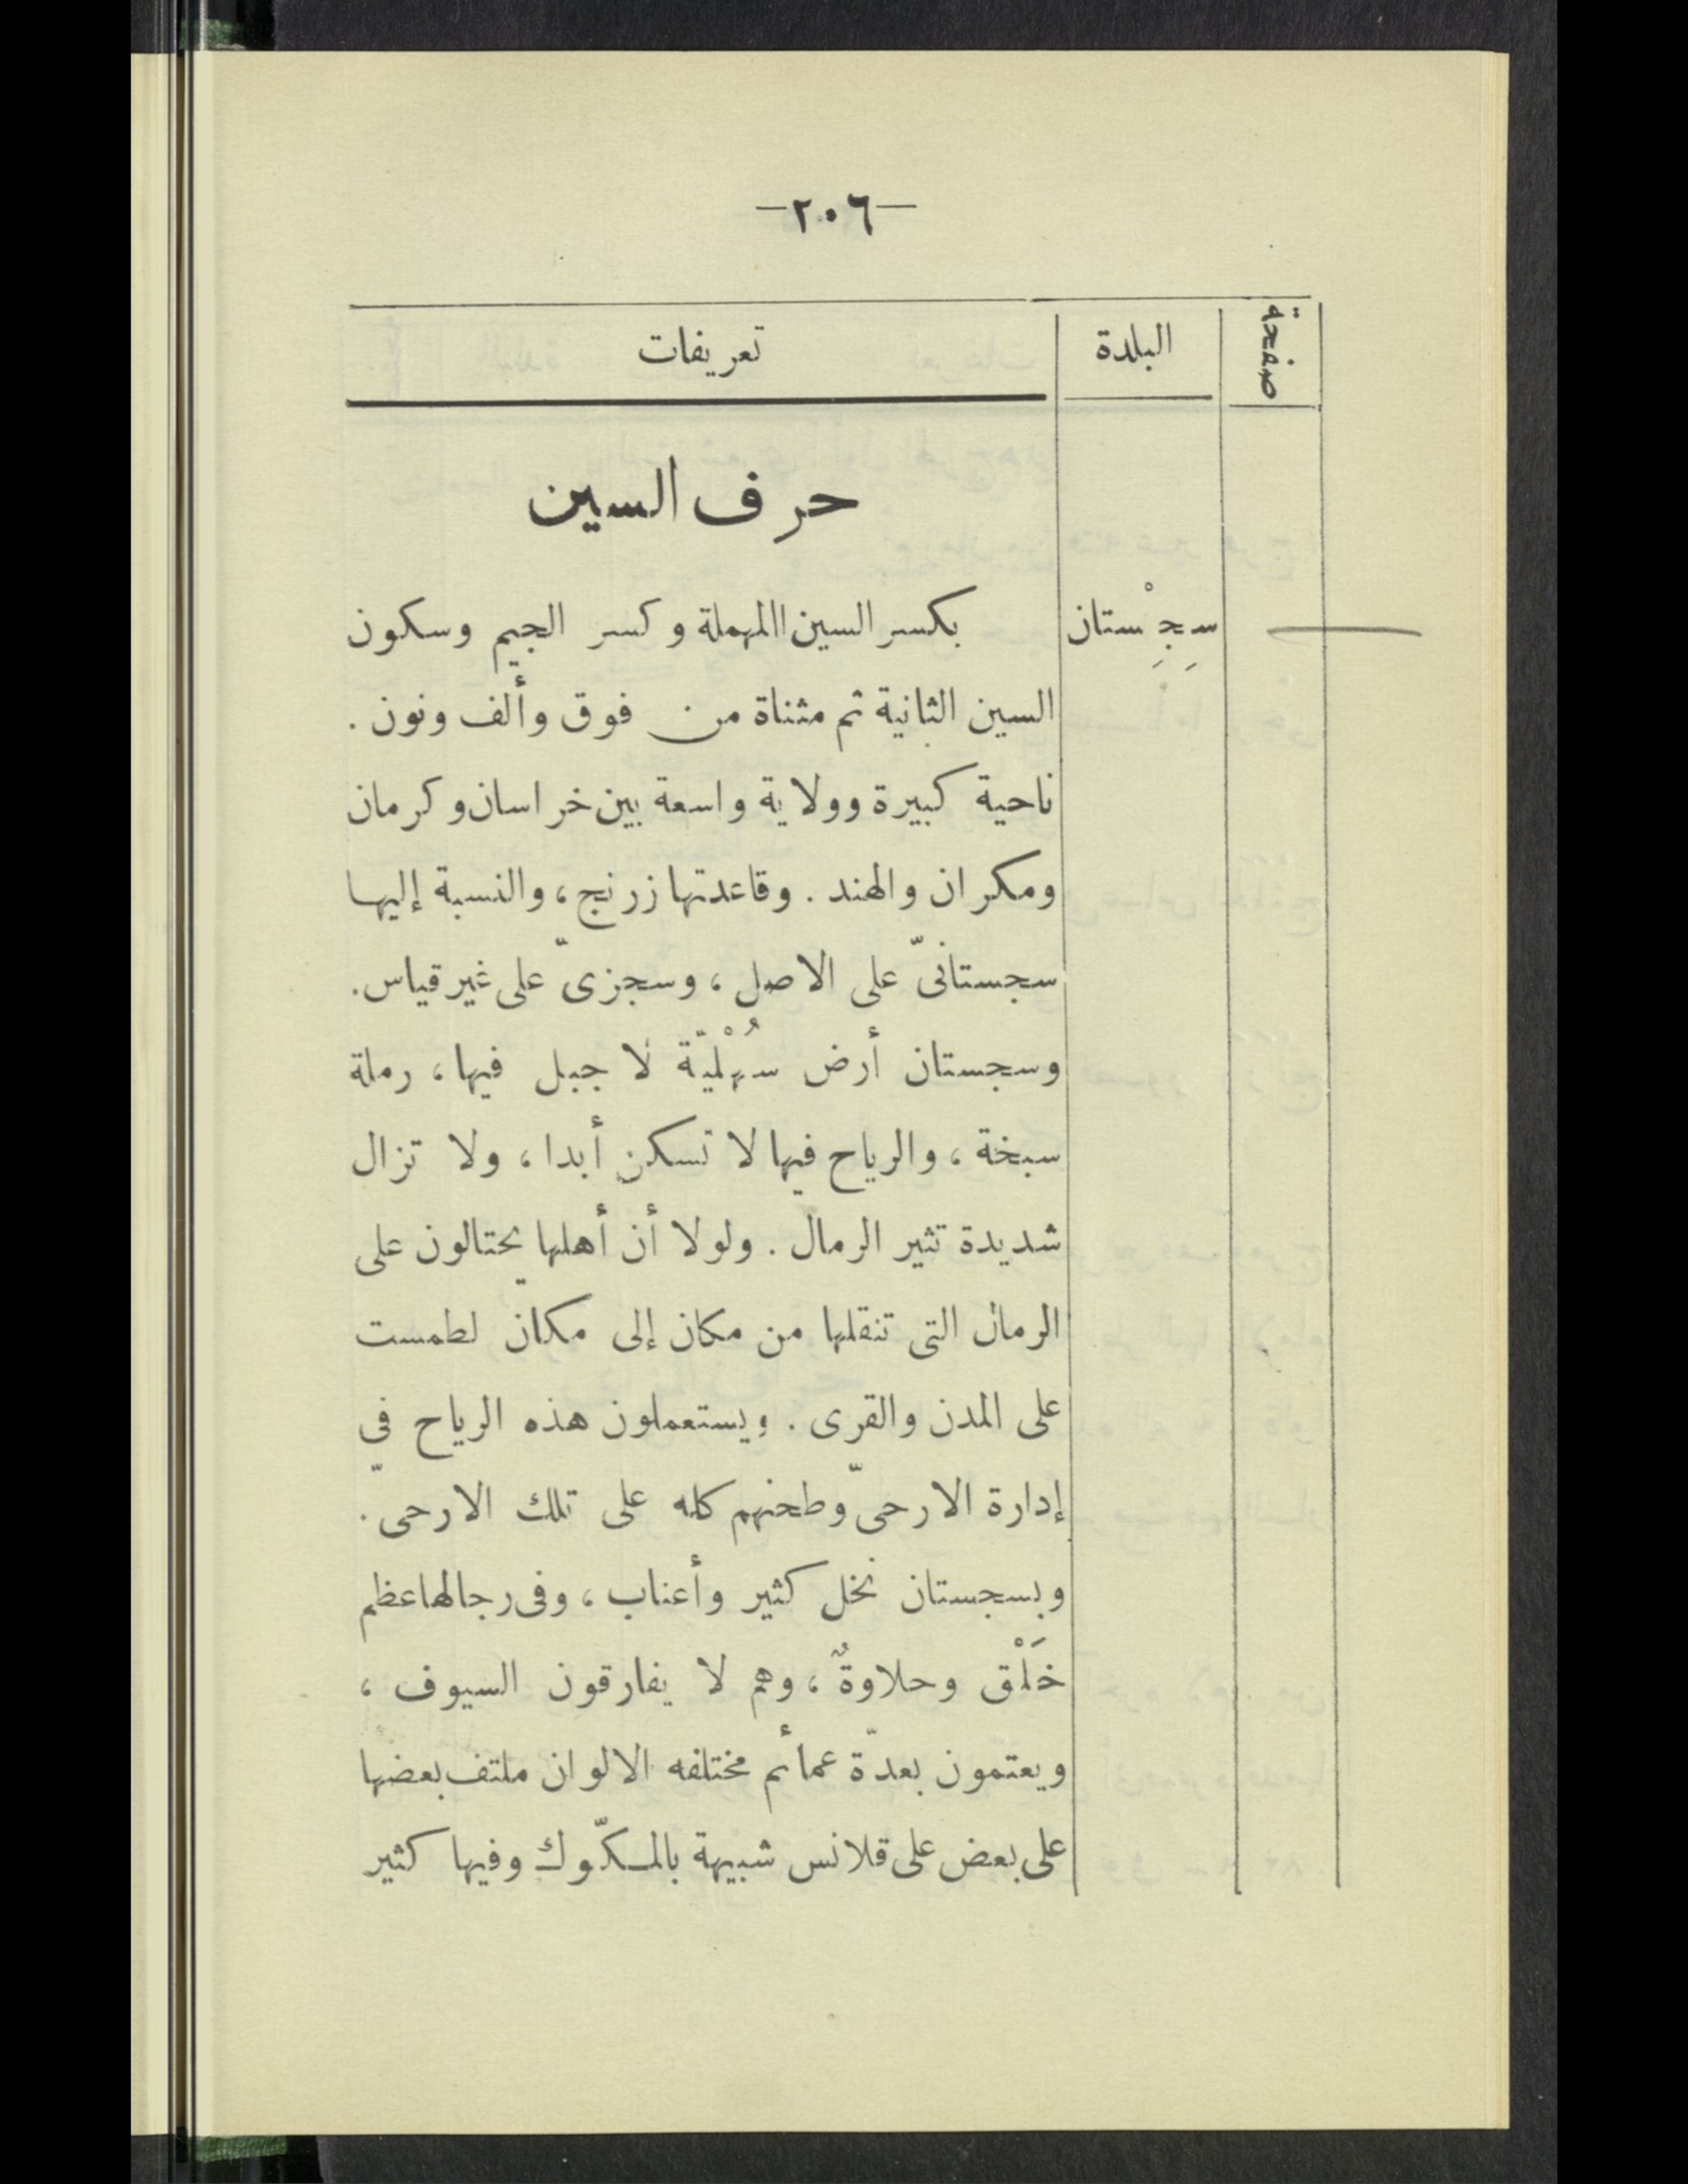 —٢٠٦—
صفحة البلدة تعريفات
حرف السين
سِجِسْتان بكسر السين االمهملة وكسر الجيم وسكون
السين الثانية ثم مثناة من فوق وألف ونون .
ناحية كبيرة وولاية واسعة بين خراسان وكرمان
ومكران والهند . وقاعدتها زرنج ، والنسبة إليها
سجستانىّ على الاصل ، وسجزىّ على غير قياس .
وسجستان أرض سُهْليّة لا جبل فيها ، رملة
سبخة ، والرياح فيها لا تسكن أبدا ، ولا تزال
شديدة تثير الرمال . ولولا أن أهلها يحتالون على
الرمال التى تنقلها من مكان إلى مكان لطمست
على المدن والقرى . ويستعملون هذه الرياح في
إدارة الارحىّ وطحنهم كله على تلك الارحى .
وبسجستان نخل كثير وأعناب ، وفى رجالها عظم
خَلْق وحلاوةٌ ، وهم لا يفارقون السيوف ،
ويعتمون بعدّة عمائم مختلفه الالوان ملتف بعضها
على بعض على قلانس شبيهة بالمكّوك وفيها كثير